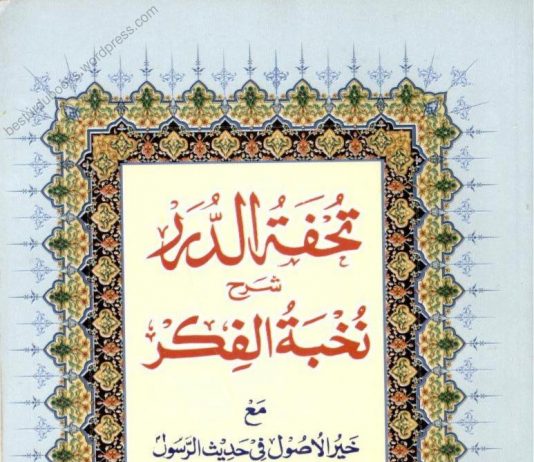 besturdubooks.wordpress.com
تُحْفَةُ الدُّرَرْ
شَرح
نُخْبَةُ الفِكَر
مَعَ
خَيرُ الاُصُول فِی حَدِیثِ الرَّسُول